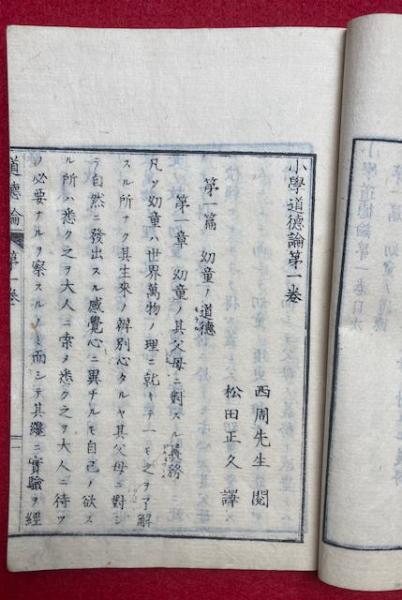 小學道德論第一卷
西周先生閲
松田正久譯
第一篇　幼童ノ道德
第一章　幼童ノ其父母ニ對スル義務
凡ソ幼童ハ世界萬物ノ理ニ就キテ一モ之ヲ了解
スル所ナク其生來ノ辨別心タルヤ其父母ニ對シ
テ自然ニ發出スル感覺心ニ異ナルモ自己ノ欲ス
ル所ハ悉ク之ヲ大人ニ索メ悉ク之ヲ大人ニ待ツ
ノ必要ナルヲ察スルノミ而シテ其纔ニ實驗ヲ經
道德論　第一卷